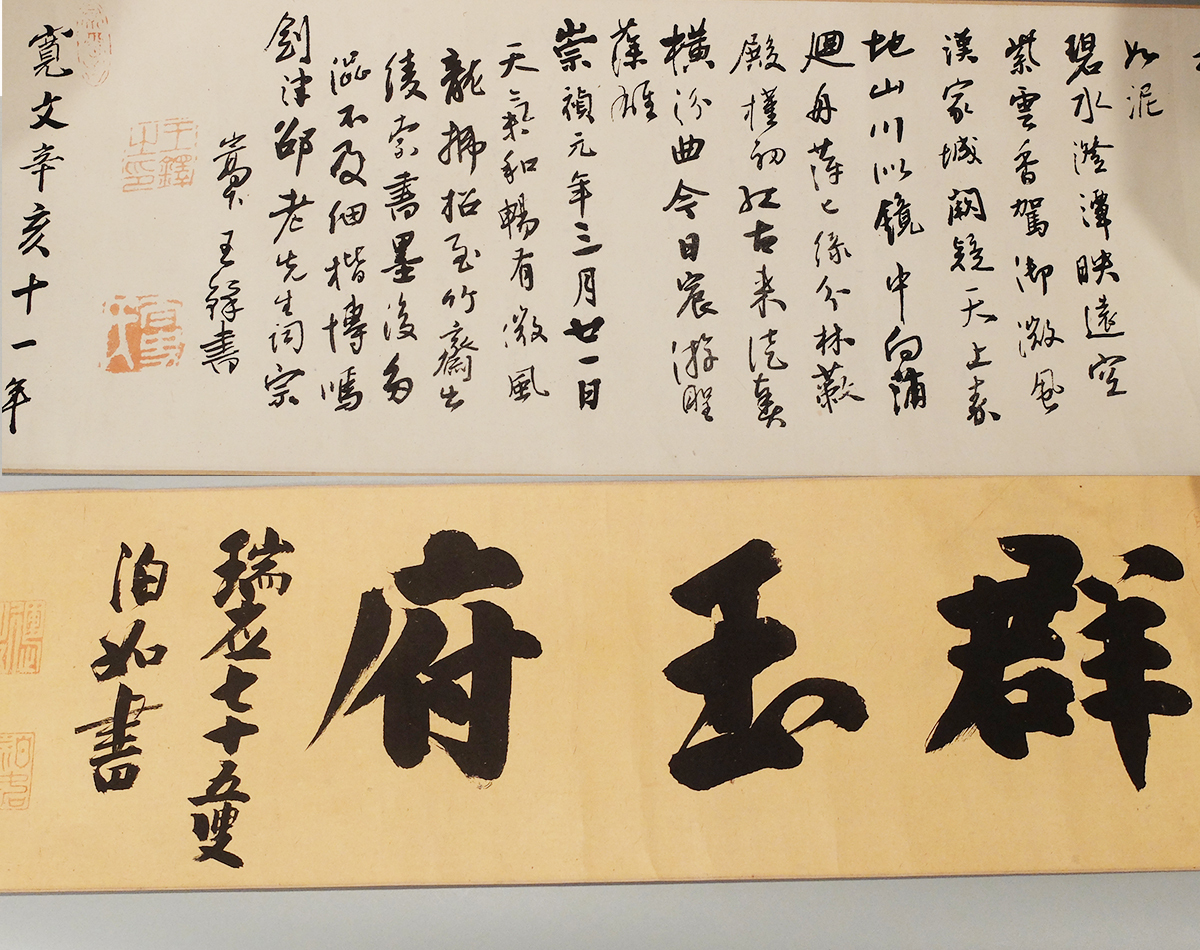 如泥
碧水澄潭映遠空
紫雲香駕御微風
漢家城闕疑天上秦
地山川似鏡中向浦
迴舟萍已綠分林蔽
殿槿初紅古來徒奏
橫汾曲今日宸游聖
藻雄
崇禎元年三月廿一日
天氣和暢有微風
龍拂招至竹齋出
綾索書墨多
澁不及細楷博
劍津邵老先生詞宗
王鐸書
王鐸之印
寬文辛亥十一年
群玉府
瑞七十五叟
泊如書